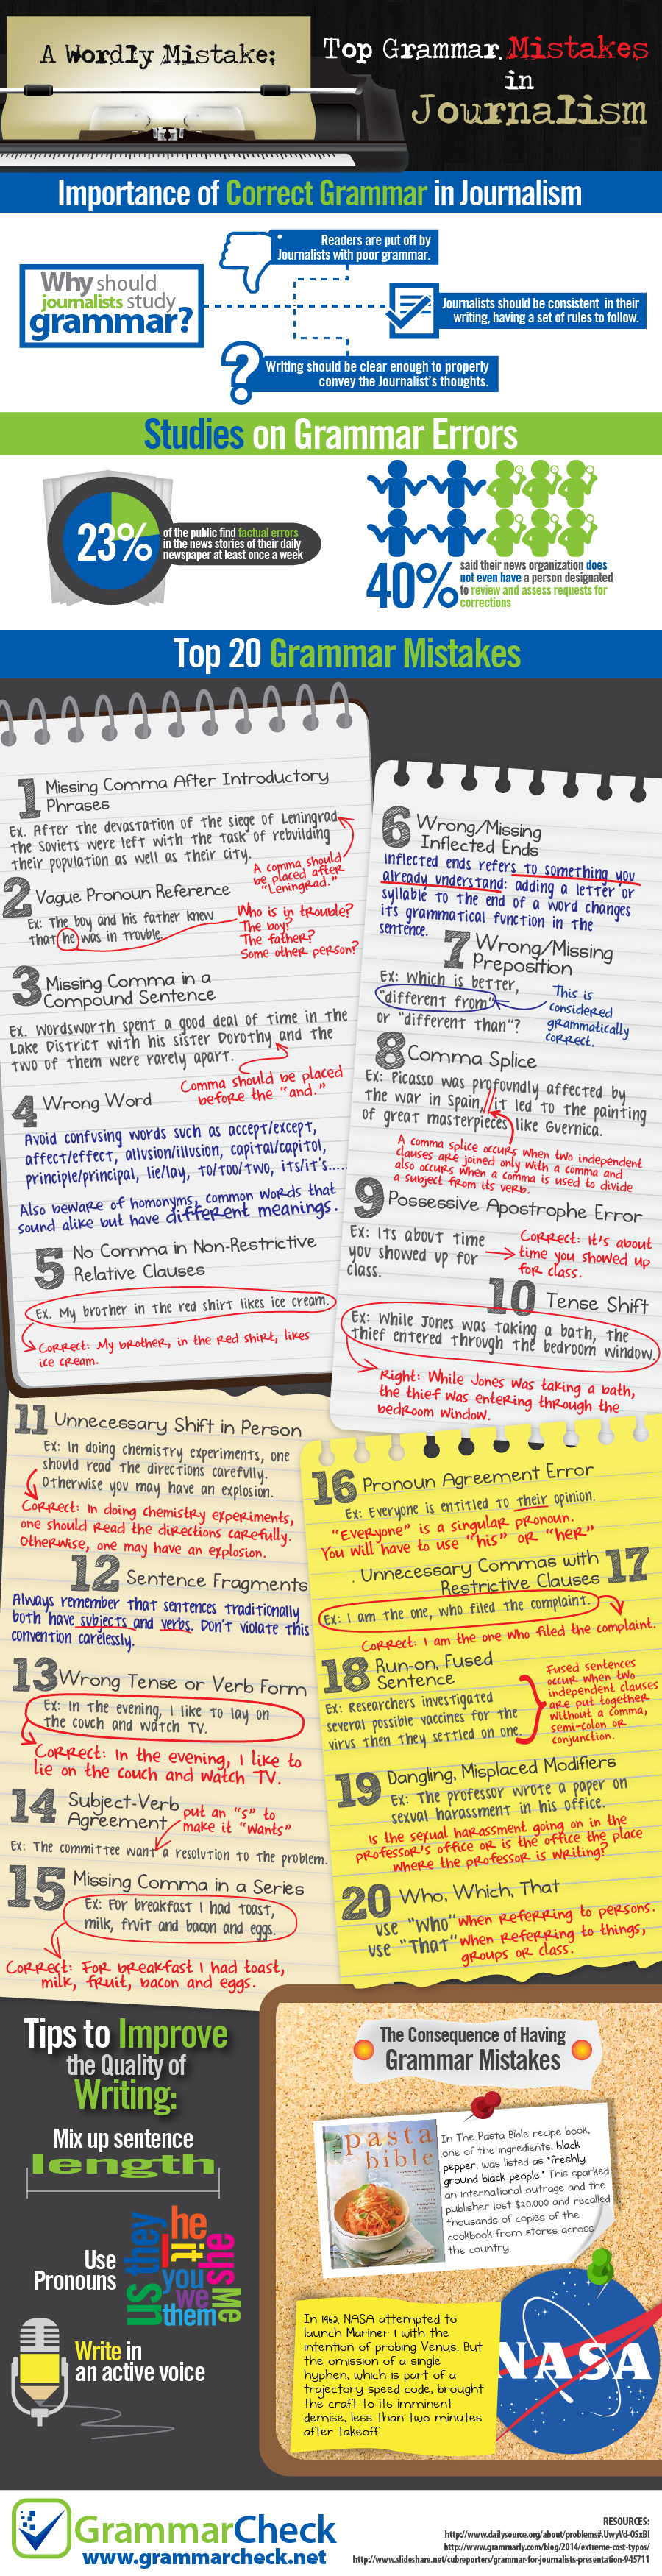 A Wordly Mistake:
Top Grammar Mistakes
in
Journalism
Importance of Correct Grammar in Journalism
Why should
journalists study
grammar?
Readers are put off by
Journalists with poor grammar.
Journalists should be consistent in their
writing, having a set of rules to follow.
Writing should be clear enough to properly
convey the Journalist's thoughts.
Studies on Grammar Errors
23%
of the public find factual errors
in the news stories of their daily
newspaper at least once a week
40%
said their news organization does
not even have a person designated
to review and assess requests for
corrections
Top 20 Grammar Mistakes
1 Missing Comma After Introductory
Phrases
Ex. After the devastation of the siege of Leningrad
the Soviets were left with the task of rebuilding
their population as well as their city.
A comma should
be placed after
"Leningrad."
2 Vague Pronoun Reference
Ex: The boy and his father knew
that he was in trouble.
Who is in trouble?
The boy?
The father?
Some other person?
3 Missing Comma in a
Compound Sentence
Ex. Wordsworth spent a good deal of time in the
Lake District with his sister Dorothy and the
two of them were rarely apart.
Comma should be placed
before the "and."
4 Wrong Word
Avoid confusing words such as accept/except,
affect/effect, allusion/illusion, capital/capitol,
principle/principal, lie/lay, to/too/two, its/it's.....
Also beware of homonyms, common words that
sound alike but have different meanings.
5 No Comma in Non-Restrictive
Relative Clauses
Ex. My brother in the red shirt likes ice cream.
Correct: My brother, in the red shirt, likes
ice cream.
6 Wrong/Missing
Inflected Ends
Inflected ends refers to something you
already understand: adding a letter or
syllable to the end of a word changes
its grammatical function in the
sentence.
7 Wrong/Missing
Preposition
Ex: Which is better,
"different from"
or "different than"?
This is
considered
grammatically
correct.
8 Comma Splice
Ex: Picasso was profoundly affected by
the war in Spain, it led to the painting
of great masterpieces like Guernica.
A comma splice occurs when two independent
clauses are joined only with a comma and
also occurs when a comma is used to divide
a subject from its verb.
9 Possessive Apostrophe Error
Ex: Its about time
you showed up for
class.
Correct: It's about
time you showed up
for class.
10 Tense Shift
Ex: While Jones was taking a bath, the
thief entered through the bedroom window.
Right: While Jones was taking a bath,
the thief was entering through the
bedroom window.
11 Unnecessary Shift in Person
Ex: In doing chemistry experiments, one
should read the directions carefully.
Otherwise you may have an explosion.
Correct: In doing chemistry experiments,
one should read the directions carefully.
Otherwise, one may have an explosion.
12 Sentence Fragments
Always remember that sentences traditionally
both have subjects and verbs. Don't violate this
convention carelessly.
13 Wrong Tense or Verb Form
Ex: In the evening, I like to lay on
the couch and watch TV.
Correct: In the evening, I like to
lie on the couch and watch TV.
14 Subject-Verb
Agreement
put an "s" to
make it "wants"
Ex: The committee want a resolution to the problem.
15 Missing Comma in a Series
Ex: For breakfast I had toast,
milk, fruit and bacon and eggs.
Correct: For breakfast I had toast,
milk, fruit, bacon and eggs.
16 Pronoun Agreement Error
Ex: Everyone is entitled to their opinion.
"Everyone" is a singular pronoun.
You will have to use "his" or "her"
Unnecessary Commas with
Restrictive Clauses 17
Ex: I am the one, who filed the complaint.
Correct: I am the one who filed the complaint.
18 Run-on, Fused
Sentence
Ex: Researchers investigated
several possible vaccines for the
virus then they settled on one.
Fused sentences
occur when two
independent clauses
are put together
without a comma,
semi-colon or
conjunction.
19 Dangling, Misplaced Modifiers
Ex: The professor wrote a paper on
sexual harassment in his office.
Is the sexual harassment going on in the
professor's office or is the office the place
where the professor is writing?
20 Who, Which, That
use "Who" when referring to persons.
use "That" when referring to things,
groups or class.
Tips to Improve
the Quality of
Writing:
Mix up sentence
length
Use
Pronouns
they
he
it
she
you
us
we
me
them
Write in
an active voice
The Consequence of Having
Grammar Mistakes
pasta
bible
In The Pasta Bible recipe book,
one of the ingredients, black
pepper, was listed as "freshly
ground black people." This sparked
an international outrage and the
publisher lost $20,000 and recalled
thousands of copies of the
cookbook from stores across
the country
In 1962, NASA attempted to
launch Mariner 1 with the
intention of probing Venus. But
the omission of a single
hyphen, which is part of a
trajectory speed code, brought
the craft to its imminent
demise, less than two minutes
after takeoff.
NASA
GrammarCheck
www.grammarcheck.net
RESOURCES:
http://www.dailysource.org/about/problems#.UwyVd-OSxBI
http://www.grammarly.com/blog/2014/extreme-cost-typos/
http://www.slideshare.net/cubreporters/grammar-for-journalists-presentation-945711